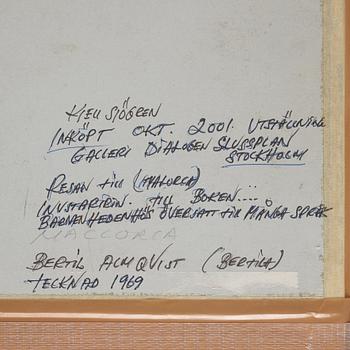 KJELL SJÖGREN
INKÖPT OKT. 2001. UTSTÄLLNING
GALLERI DIALOGEN SLUSSPLAN
STOCKHOLM
RESAN TILL (MALLORCA)
TILL BOKEN....
BARNA HEDENHÖS ÖVERSATT TILL MÅNGA SPRÅK
MALLORCA
BERTIL ALMQVIST (BERTILA)
TECKNAD 1969